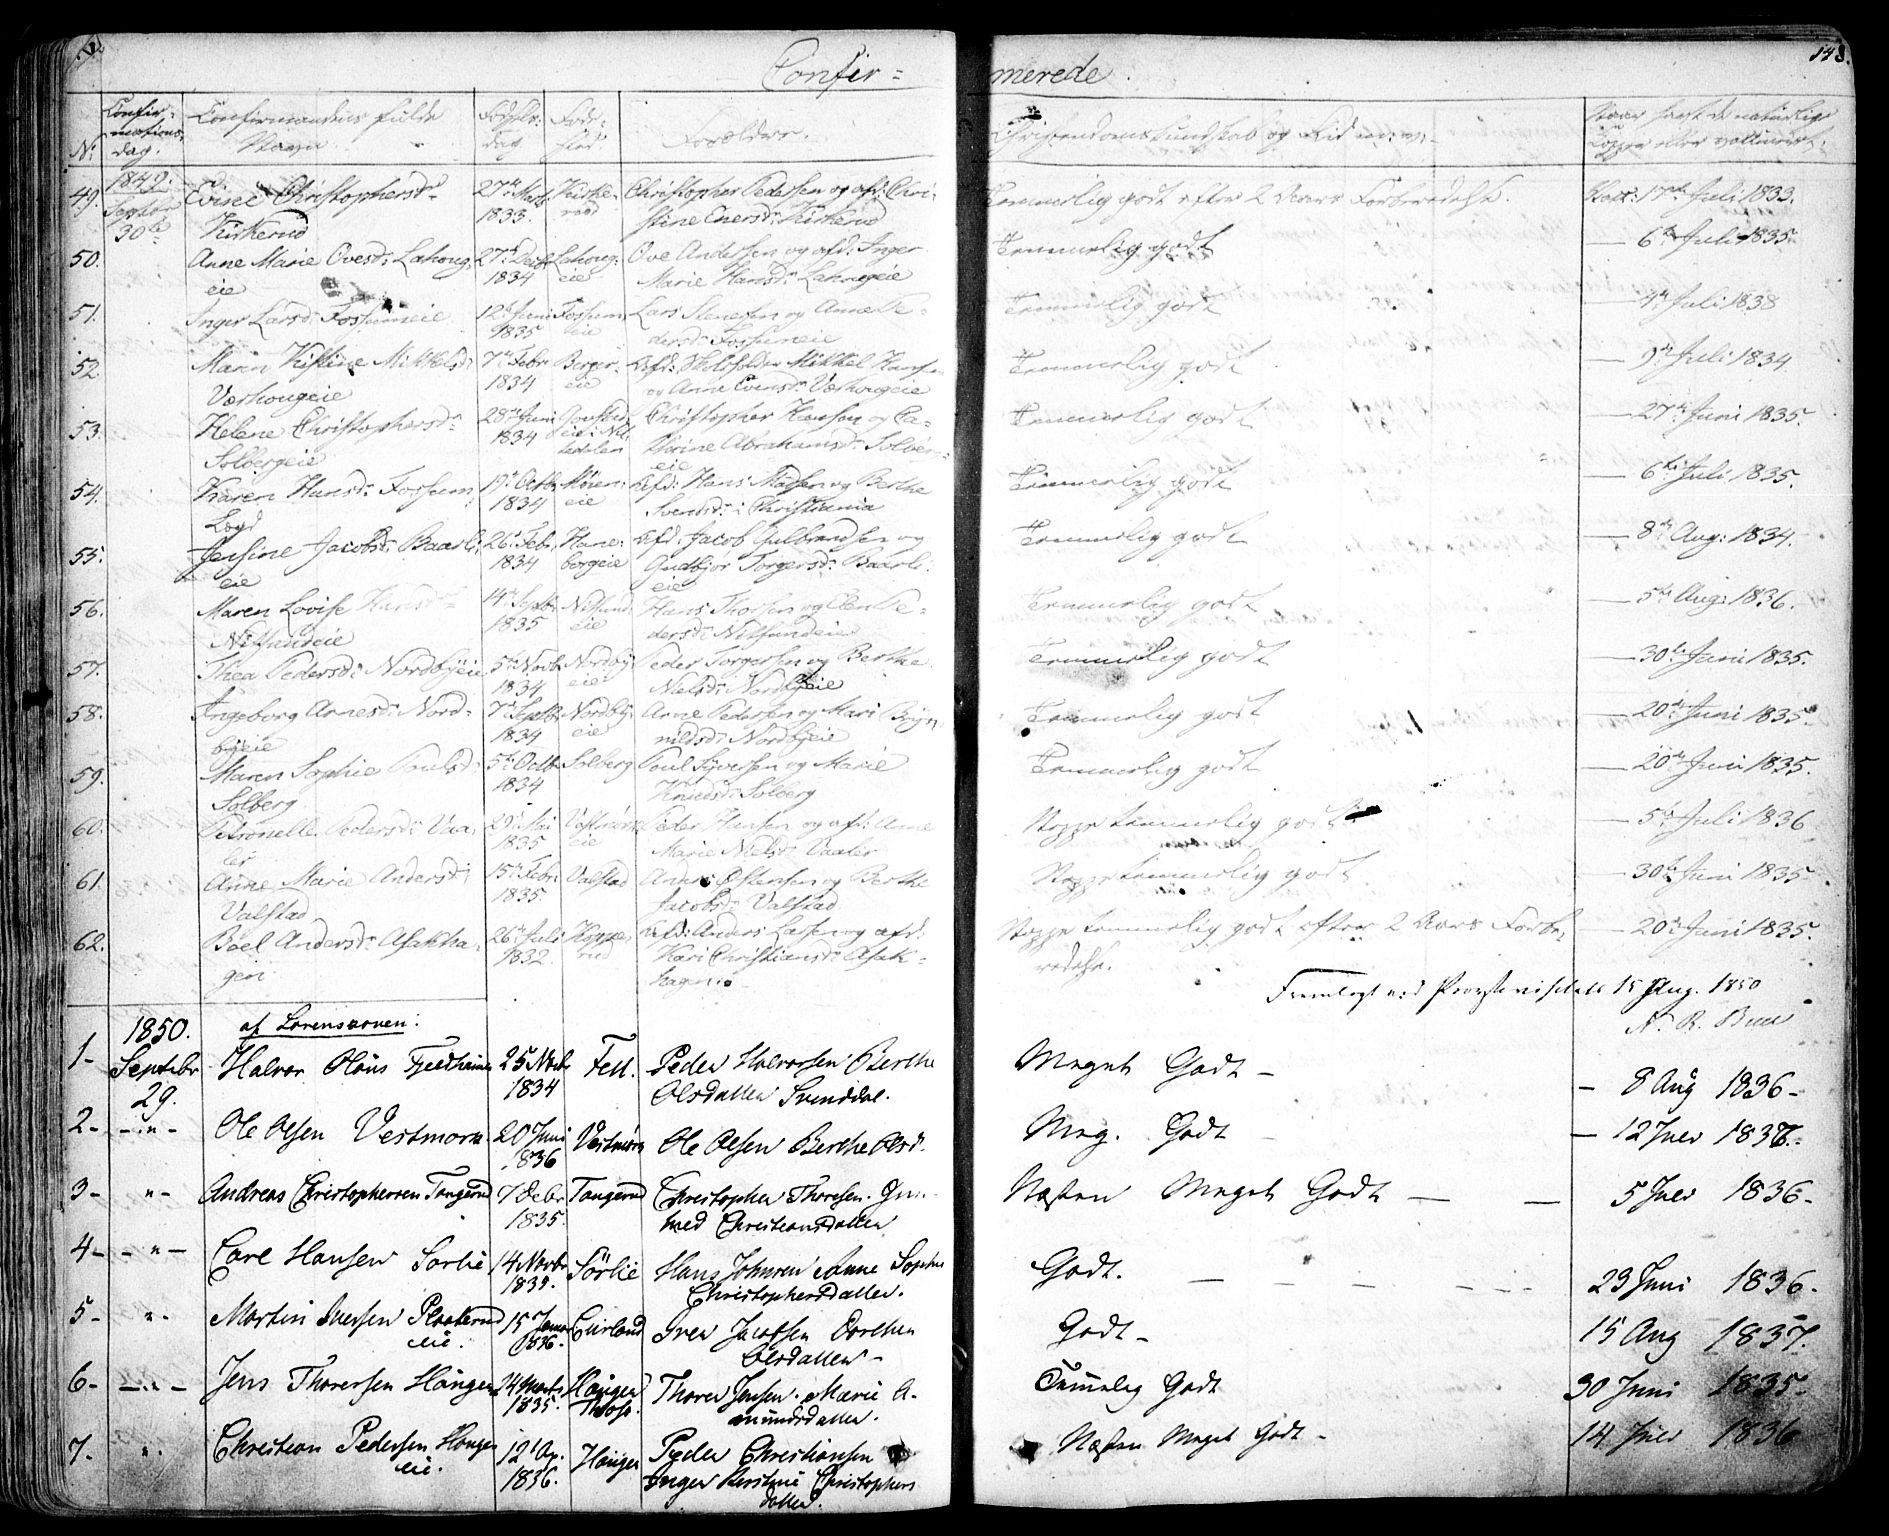 Confir-
merede.
148.
Confir-
mations
dag.
No
Confirmandens fulde
Navn
Fødsels
dag
Føde-
sted
Forældre.
Christendoms Kundskab og Flid m: v:
1849.
Septbr
30te
49. Christophersd:
Kirkerud
27de Marts
1833.
Christopher Pedersen og afd: Chri-
stine Enersd: Kirkerud
Temmelig godt efter 2 Aars Forberedelse.
Kop: 17de Juli 1833.
50. Anne Marie Ovesd: Lahoug-
eie
27de Decbr
1834
Lahoug-
eie
Ove Andersen og afd: Inger
Marie Hansd: Lahougeie
Temmelig godt
— 6te Juli 1835
51. Inger Larsd: Fossumeie
12te Juni
1835
Fossum-
eie
Lars Stenersen og Anne Pe-
dersd: Fossumeie
Temmelig godt
— 4de Juli 1838
52. Maren Kistine Mikkelsd:
Værhougeie
7de Febr
1834
Berger-
eie
Afd: Mikkel Hansen
og Anne Evensd: Værhougeie
Temmelig godt
— 9de Juli 1834
53. Helene Christophersd:
Solbergeie
28de Juni
1834
Christopher Hansen og Ca-
thrine Abrahamsd: Solber-
eie
Temmelig godt
— 27de Juni 1835.
54. Karen Hansd: Fossum
19de Octbr
1834
eie
Afd: Hans Madsen og Berthe
Svendsd: i Christiania
Temmelig godt
— 6te Juli 1835.
55. Jensine Jacobsd: Baarli-
eie
26de Febr.
1834
Hane-
borgeie
Afd: Jacob Gulbrandsen og
Gudbjor Torgersd: Baarli-
eie
Temmelig godt
— 8de Aug: 1834.
56. Maren Lovise Hansd:
Nitsundeie
14de Septbr
1835
Nitsund-
eie
Hans Thorsen og Elen Pe-
dersd: Nitsundeie
Temmelig godt
— 5te Aug: 1836.
57. Thea Pedersd: Nordbyeie
5te Novb
1834
Nordby
eie
Peder Torgersen og Berthe
Nielsd: Nordbyeie
Temmelig godt
— 30te Juni 1835.
58. Ingeborg Arnesd: Nord-
byeie
7de Septbr
1834
Nordby
eie
Arne Pedersen og Mari Bryn-
nildsd: Nordbyeie
Temmelig godt
— 20de Juni 1835.
59. Maren Sophie Poulsd:
Solberg
5te Octb
1834
Solberg
Poul Syversen og Marie
Knudsd: Solberg
Temmelig godt
— 20de Juni 1835.
60. Petronelle Pedersd: Vaa-
ler
29de Mai
1835
eie
Peder Hansen og afd: Anne
Marie Nielsd: Vaaler
Neppe temmelig godt
— 5te Juli 1836
61. Anne Marie Andersd:
Valstad
15de Febr:
1835
Valstad
Anders Østensen og Berthe
Jacobsd: Valstad
Neppe temmelig godt
— 30te Juni 1835
62. Boel Andersd: Asakha-
gen
26de Juli
1832.
Afd: Anders Larsen og afd:
Kari Christiansd: Asak-
hagen.
Neppe temmelig godt efter 2 Aars Forbe-
redelse.
— 20de Juni 1835.
Fremlagt ved Provstevisitats 15 Aug. 1850
N. R. Bull
1850.
af Lorenskoven:
1- Septebr
29.
Halvor Olaus Fjeldhamer
25 Novbr
1834
Feld.
Peder Halvorsen Berthe
Olsdatter Svenddal.
Meget Godt -
- 8 Aug 1836-
2- -"- Ole Olsen Vestmora
20 Juni
1836
Vestmora
Ole Olsen Berthe Olsd.
Meg. Godt
- 12 July 1836.-
3- " - Andreas Christophersen Tangerud
7 Debr
1835.
Tangerud
Christopher Thoresen. Gun-
hed Christiansdatter
Næsten Meget Godt — —
5 July 1836-
4- -"- Carl Hansen Sørlie
14 Novbr
1835.
Sørlie
Hans Johnsen Anne Sophie
Christophersdatter.
Godt.
23 Juni 1836.
5- "- Martin Iversen
eie.
15 Januar
1836.
Iver Jacobsen Dorthea
Olsdatter-
Godt-
15 Aug 1837.
6- -"- Jens Thorersen Hånger
24 Marts
1835.
Hånger
Thorer Jensen. Marie A-
mundsdatter.
Temmeleg Godt
30 Juni 1835-
7- ". Christian Pedersen Honger
eie.
12 Ap.
1836.
Hånger
Peder Christiansen
Inger Kerstine Christophers
datter.
Næsten Meget Godt -
14 July 1836